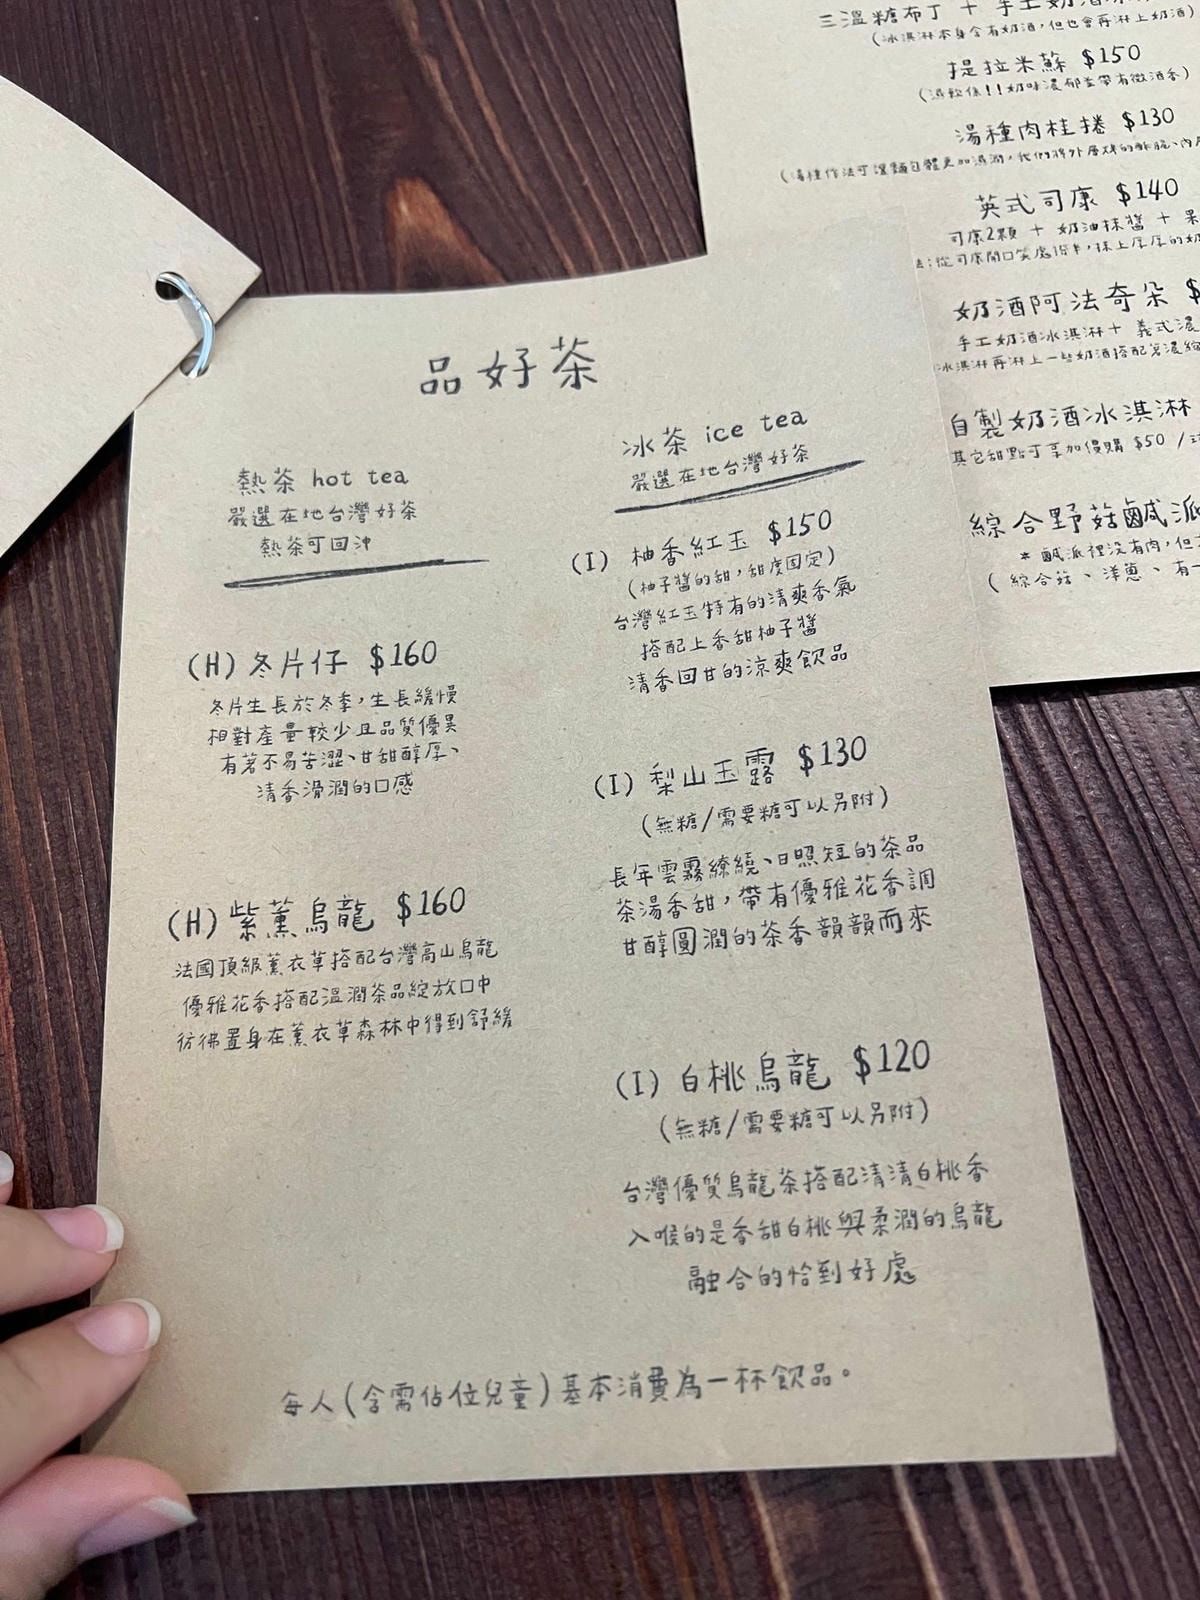 品好茶
熱茶 hot tea
嚴選在地台灣好茶
熱茶可回沖
(H) 冬片仔 $160
冬片生長於冬季,生長緩慢
相對產量較少且品質優異
有著不易苦澀、甘甜醇厚、
清香滑潤的口感
(H) 紫薰烏龍 $160
法國頂級薰衣草搭配台灣高山烏龍
優雅花香搭配溫潤茶品綻放口中
彷彿置身在薰衣草森林中得到舒緩
冰茶 ice tea
嚴選在地台灣好茶
(I) 柚香紅玉 $150
(柚子醬的甜,甜度固定)
台灣紅玉特有的清爽香氣
搭配上香甜柚子醬
清香回甘的涼爽飲品
(I) 梨山玉露 $130
(無糖/需要糖可以另附)
長年雲霧繚繞、日照短的茶品
茶湯香甜,帶有優雅花香調
甘醇圓潤的茶香韻韻而來
(I) 白桃烏龍 $120
(無糖/需要糖可以另附)
台灣優質烏龍茶搭配清清白桃香
入喉的是香甜白桃與柔潤的烏龍
融合的恰到好處
每人(含需佔位兒童)基本消費為一杯飲品。
三溫糖布丁 + 手工奶酒冰
(冰淇淋本身含有奶酒,但也會再淋上奶酒)
提拉米蘇 $150
(濕軟係!!奶味濃郁並帶有微酒香)
湯種肉桂捲 $130
(湯種作法可讓麵包體更加濕潤,我們將外層烤的酥脆、內
英式司康 $140
司康2顆 + 奶油抹醬 + 果
法:從司康開口笑處掰半,抹上厚厚的奶
奶酒阿法奇朵 $
手工奶酒冰淇淋 + 義式濃
冰淇淋再淋上一些奶酒搭配著濃
自製奶酒冰淇淋
其它甜點可享加價購 $50 /
綜合野菇鹹派
* 鹹派裡沒有肉,但
(綜合菇、洋蔥、有一